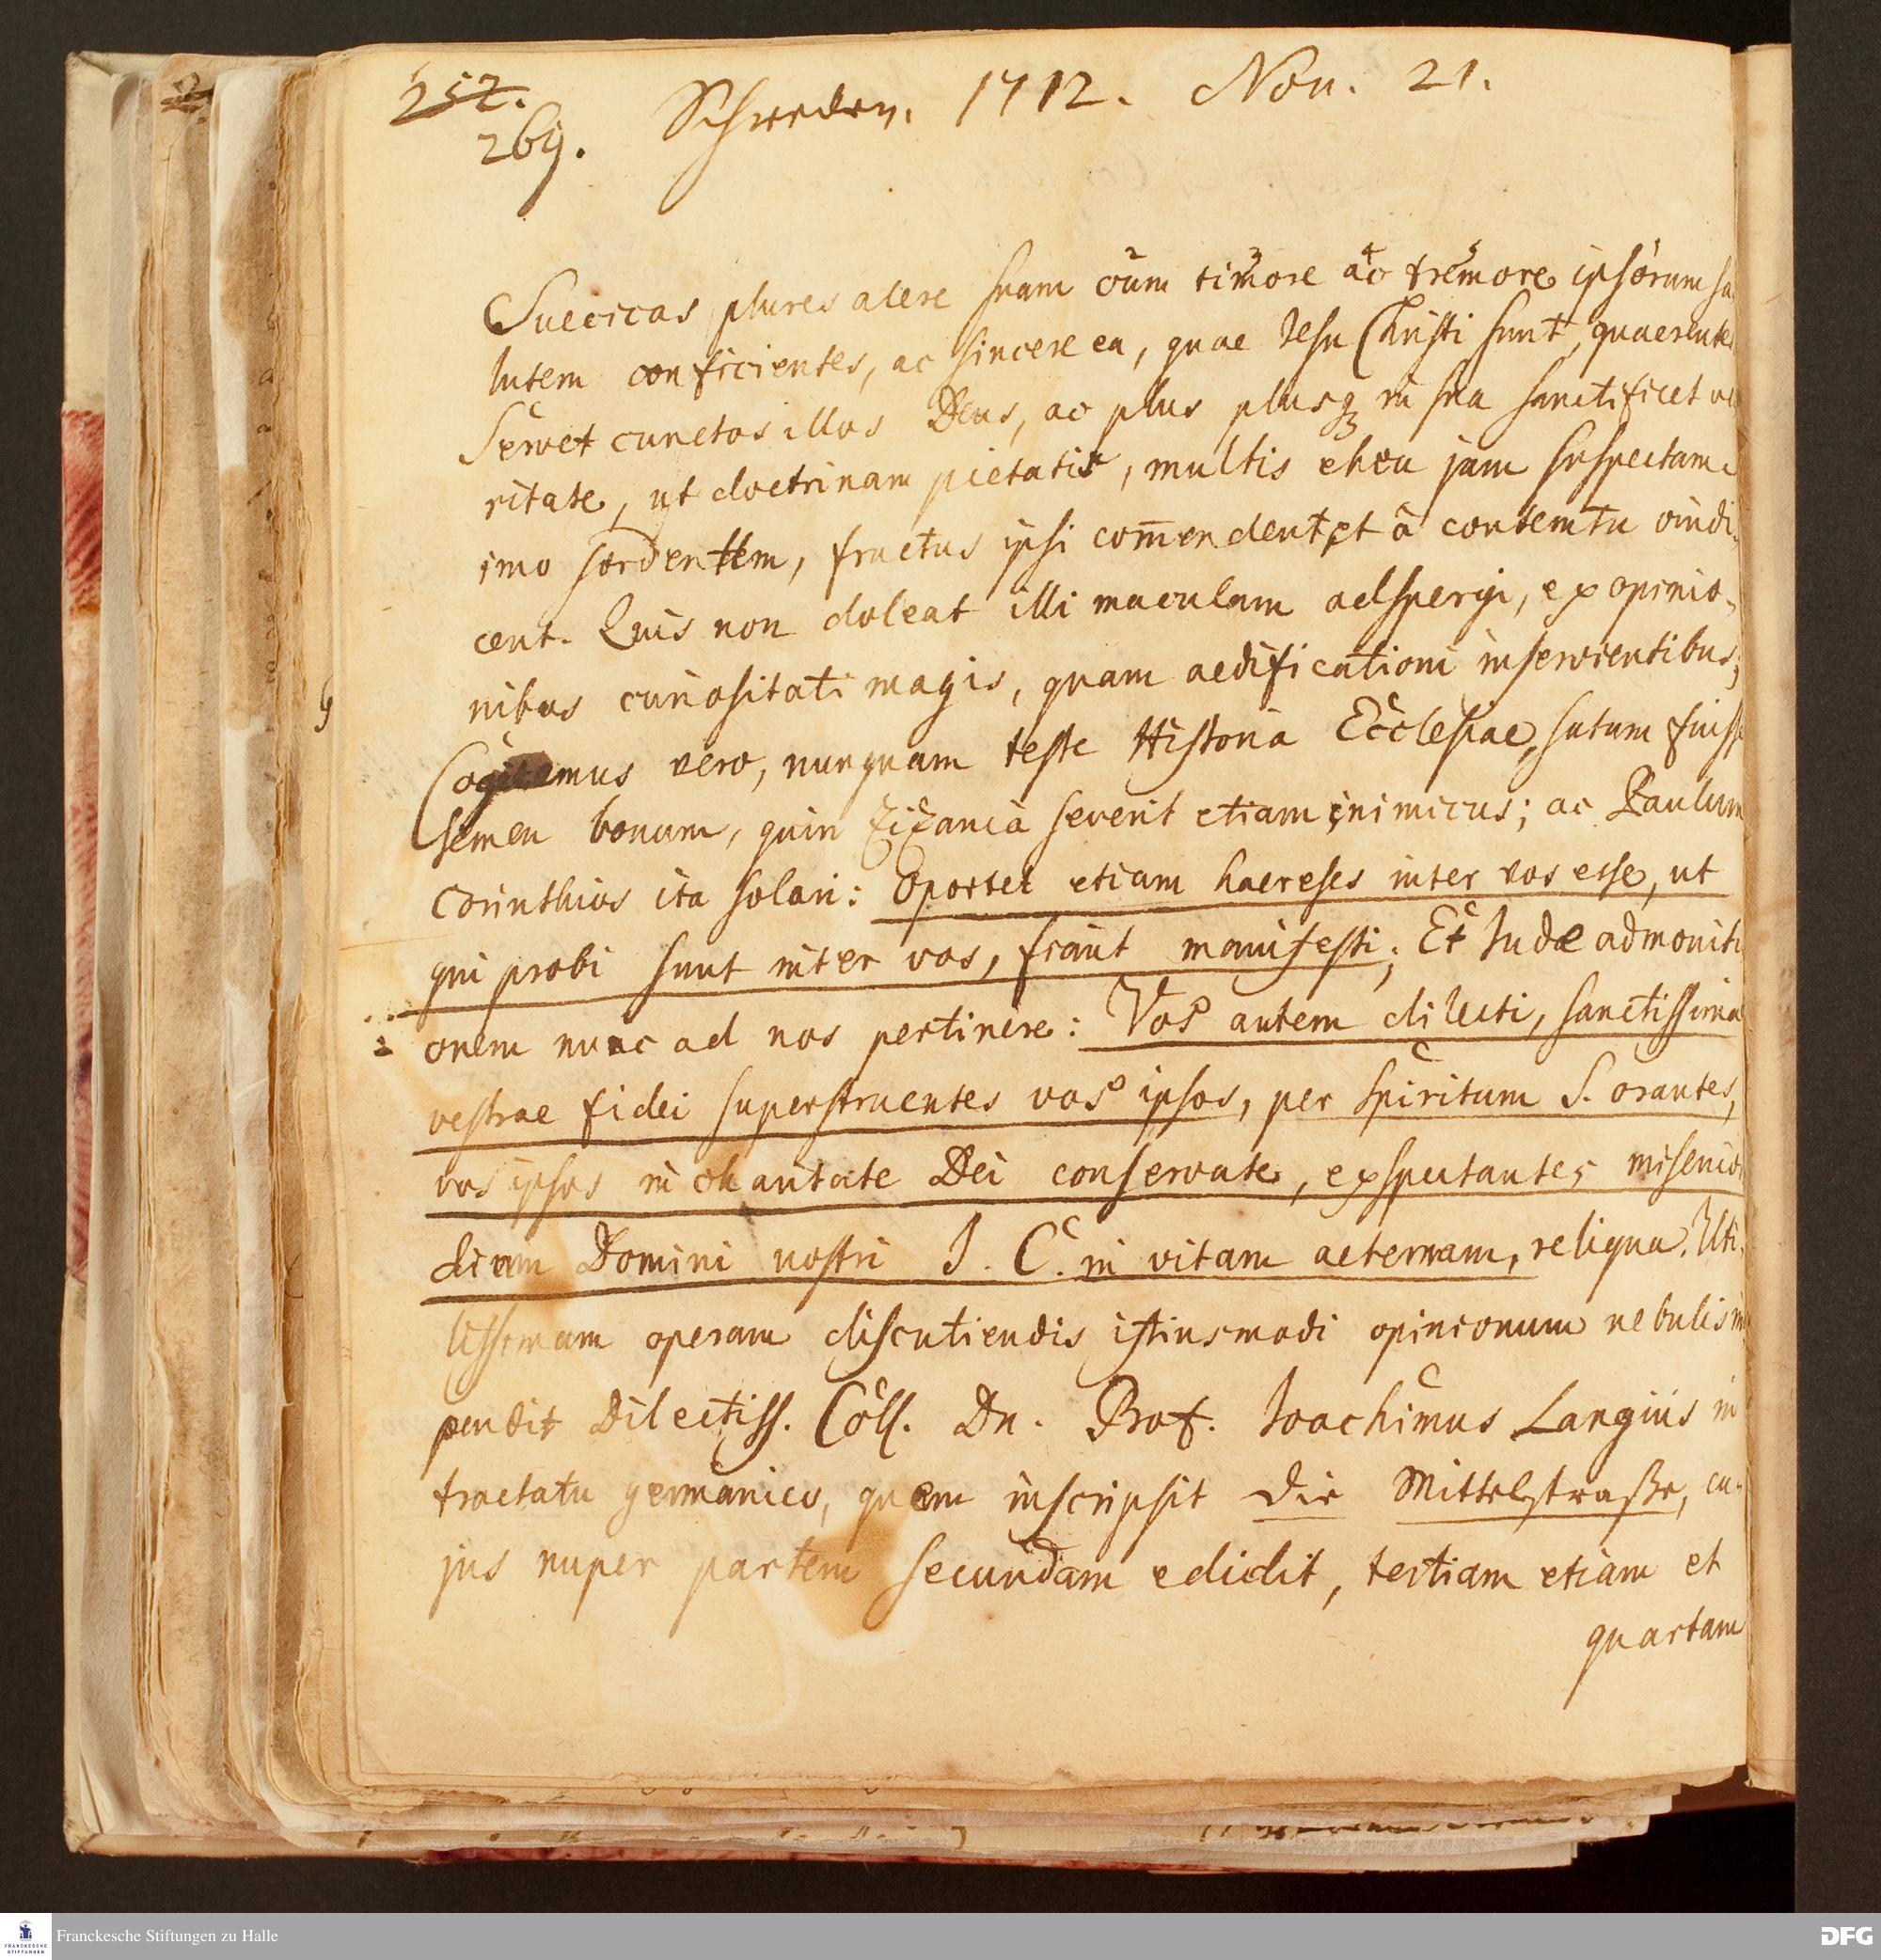 252.
269. Schweden. 1712. Nov. 21.
Suecicas plures alere suam cum timore ac tremore ipsorum sa
lutem conficientes, ac sincere ea, quae Jesu Christi sunt, quaerentes
Servet cunctos illos Deus, ac plus plusq in sua sanctificet ve
ritate, ut doctrinam pietatis, multis eheu jam suspectam
imo sordentem, fructus ipsi com̄endent et à contemtu vindi,
cent. Quis non doleat illi maculam adspergi, ex opinio,
nibus curiositati magis, quam aedificationi inservientibus;
Cogitemus vero, nunquam teste Historia Ecclesiae, satum fuisse
semen bonum, quin zizania severit etiam inimicus; ac Paulum
Corinthios ita solari: Oportet etiam haereses inter vos esse, ut
qui probi sunt inter vos, fiant manifesti; Et Judae admoniti
onem nunc ad nos pertinere: Vos autem dilecti, sanctissima
vestrae fidei superstruentes vos ipsos, per Spiritum S. orantes,
vos ipsos in charitate Dei conservate, exspectantes misericor
diam Domini nostri J. C. in vitam aeternam, reliqua. Uti,
lissimam operam discutiendis istiusmodi opinionum nebulis im
pendit Dilectiss. Coll. Dn. Prof. Joachimus Langius in
tractatu germanico, quem inscripsit Die Mittelstraße, cu,
jus nuper partem secundam edidit, tertiam etiam et
quartam
Franckesche Stiftungen zu Halle
FRANCKESCHE STIFTUNGEN
DFG